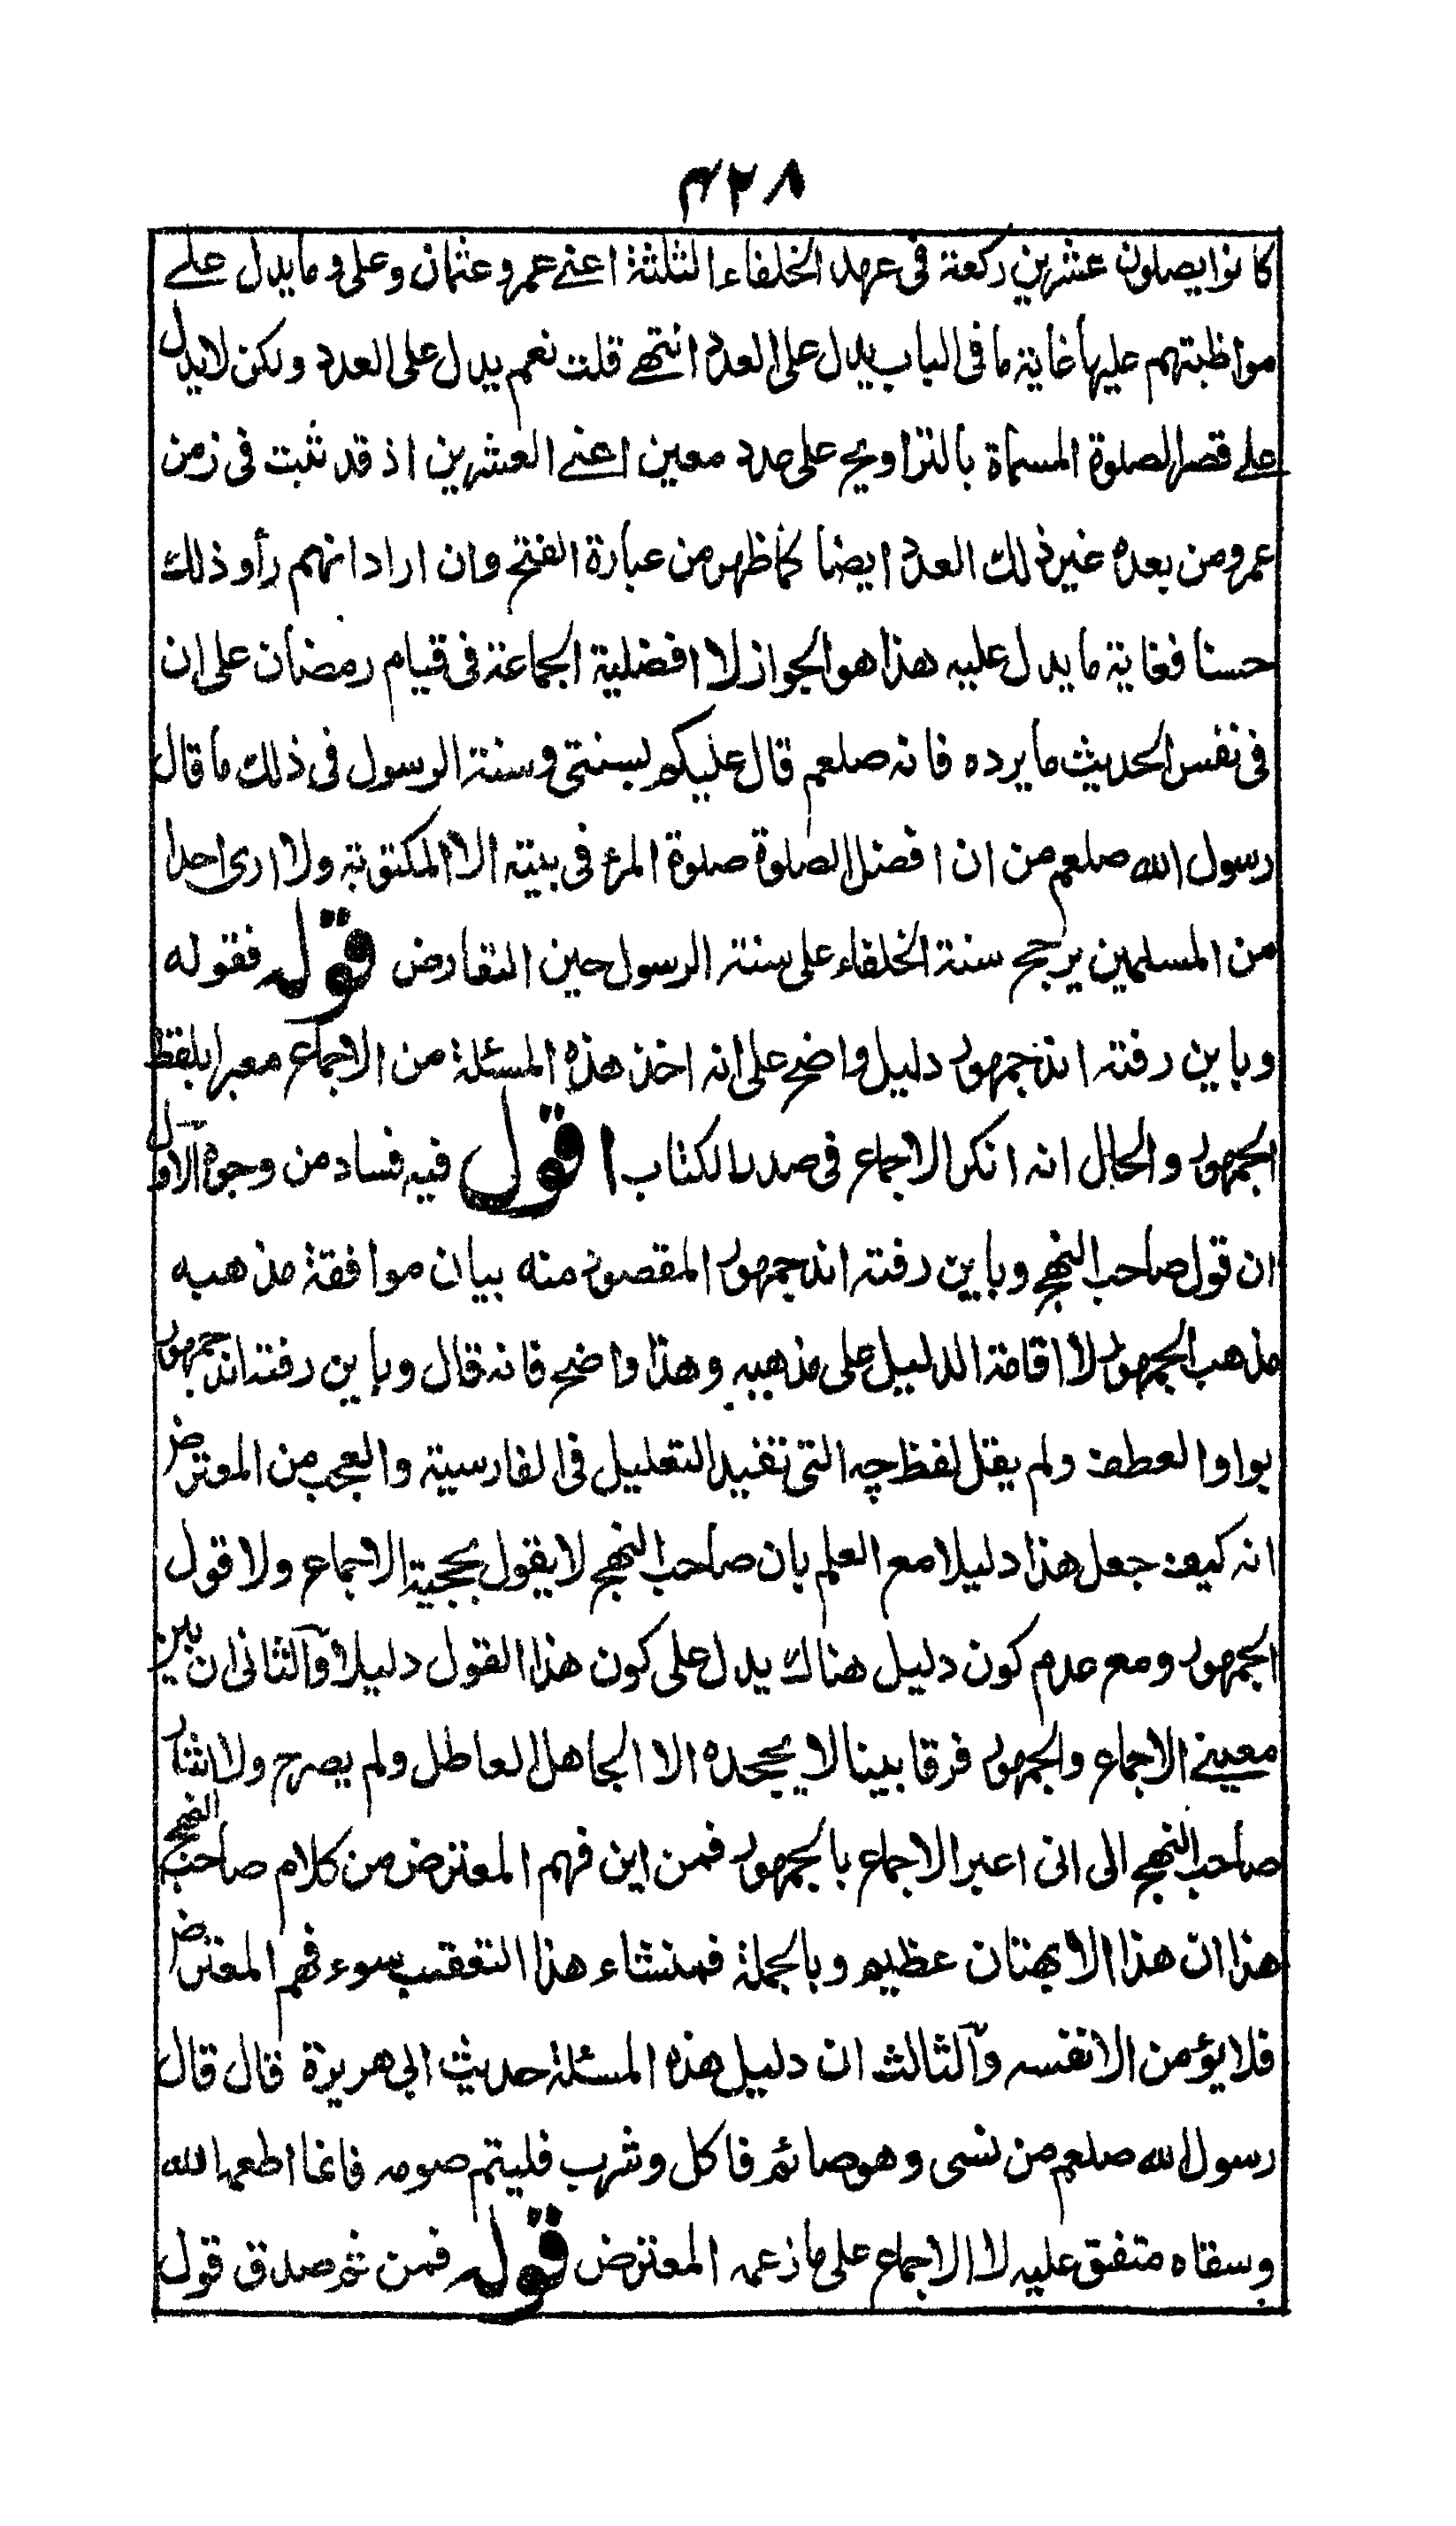 ۴۲۸
كانوا يصلون عشرين ركعة فى عهد الخلفاء الثلثة اعنے عمر و عثمان وعلى و ما يدل علے
مواظبتهم عليها غاية ما فى الباب يدل على العدد انتهے قلت نعم يدل على العدد ولكن لا يدل
علے قصر الصلوة المسماة بالتراويح على عدد معين اعنے العشرين اذ قد ثبت فى زمن
عمر ومن بعده غير ذلك العدد ايضا كما ظهر من عبارة الفتح وان اراد انهم رأوا ذلك
حسنا فغاية ما يدل عليه هذا هو الجواز لا افضلية الجماعة فى قيام رمضان على ان
فى نفس الحديث ما يرده فانه صلعم قال عليكم بسنتى وسنة الرسول فى ذلك ما قال
رسول الله صلعم من ان افضل الصلوة صلوة المرء فى بيته الا المكتوبة ولا ارى احدا
من المسلمين يرجح سنة الخلفاء على سنة الرسول حين التعارض قوله فقوله
وباين رفته اند جمهور دليل واضح على انه اخذ هذه المسئلة من الاجماع معبرا بلفظ
الجمهور والحال انه انكر الاجماع فى صدر الكتاب اقول فيه فساد من وجوه الآول
ان قول صاحب النهج وباين رفته اند جمهور المقصود منه بيان موافقة مذهبه
مذهب الجمهور لا اقامة الدليل على مذهبه وهذا واضح فانه قال وباين رفته اند جمهور
بواو العطف ولم يقل لفظ چه التى تفيد التعليل فى الفارسية والعجب من المعترض
انه كيف جعل هذا دليلا مع العلم بان صاحب النهج لا يقول بحجية الاجماع ولا قول
الجمهور ومع عدم كون دليل هناك يدل على كون هذا القول دليلا وآلثانى ان بين
معينے الاجماع والجمهور فرقا بينا لا يجحده الا الجاهل العاطل ولم يصرح ولا اشار
صاحب النهج الى انى اعبر الاجماع بالجمهور فمن اين فهم المعترض من كلام صاحب النهج
هذا ان هذا الا بهتان عظيم وبالجملة فمنشاء هذا التعقب سوء فهم المعترض
فلا يؤمن الا نفسه وآلثالث ان دليل هذه المسئلة حديث ابى هريرة قال قال
رسول الله صلعم من نسى وهو صائم فاكل وشرب فليتم صومه فانما اطعمه الله
وسقاه متفق عليه لا الاجماع على ما زعمه المعترض قوله فمن ثم صدق قول